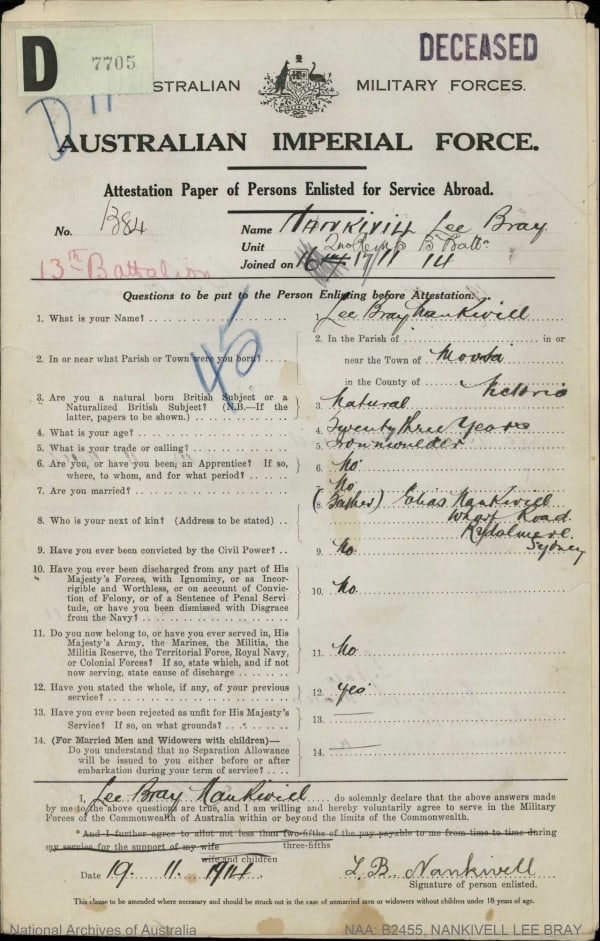 D
7705
DECEASED
D 11
AUSTRALIAN MILITARY FORCES.
AUSTRALIAN IMPERIAL FORCE.
Attestation Paper of Persons Enlisted for Service Abroad.
No. 1384 Name NANKIVILL Lee Bray
Unit 2nd Reinfs B Battn
Joined on 17/11 14
13th Battalion
Questions to be put to the Person Enlisting before Attestation.
45
1. What is your Name? 1. Lee Bray Nankivill
2. In or near what Parish or Town were you born? 2. In the Parish of in or
near the Town of Mooba
in the County of Victoria
3. Are you a natural born British Subject or a
Naturalized British Subject? (N.B.—If the
latter, papers to be shown.) 3. Natural
4. What is your age? 4. Twenty three Years
5. What is your trade or calling? 5. Ironmoulder
6. Are you, or have you been, an Apprentice? If so,
where, to whom, and for what period? 6. No
7. Are you married? 7. No
8. Who is your next of kin? (Address to be stated) 8. (Father) Elias Nankivill
Wharf Road
Rydalmere
Sydney
9. Have you ever been convicted by the Civil Power? 9. No
10. Have you ever been discharged from any part of His
Majesty's Forces, with Ignominy, or as Incor-
rigible and Worthless, or on account of Convic-
tion of Felony, or of a Sentence of Penal Servi-
tude, or have you been dismissed with Disgrace
from the Navy? 10. No
11. Do you now belong to, or have you ever served in, His
Majesty's Army, the Marines, the Militia, the
Militia Reserve, the Territorial Force, Royal Navy,
or Colonial Forces? If so, state which, and if not
now serving, state cause of discharge 11. No
12. Have you stated the whole, if any, of your previous
service? 12. yes
13. Have you ever been rejected as unfit for His Majesty's
Service? If so, on what grounds? 13. —
14. (For Married Men and Widowers with children)—
Do you understand that no Separation Allowance
will be issued to you either before or after
embarkation during your term of service? 14. —
I, Lee Bray Nankivill do solemnly declare that the above answers made
by me to the above questions are true, and I am willing and hereby voluntarily agree to serve in the Military
Forces of the Commonwealth of Australia within or beyond the limits of the Commonwealth.
* And I further agree to allot not less than two-fifths of the pay payable to me from time to time during
my service for the support of my wife three-fifths
wife and children
Date 19. 11. 1914 L. B. Nankivell
Signature of person enlisted.
This clause to be amended where necessary and should be struck out in the case of unmarried men or widowers without children under 18 years of age.
National Archives of Australia NAA: B2455, NANKIVELL LEE BRAY